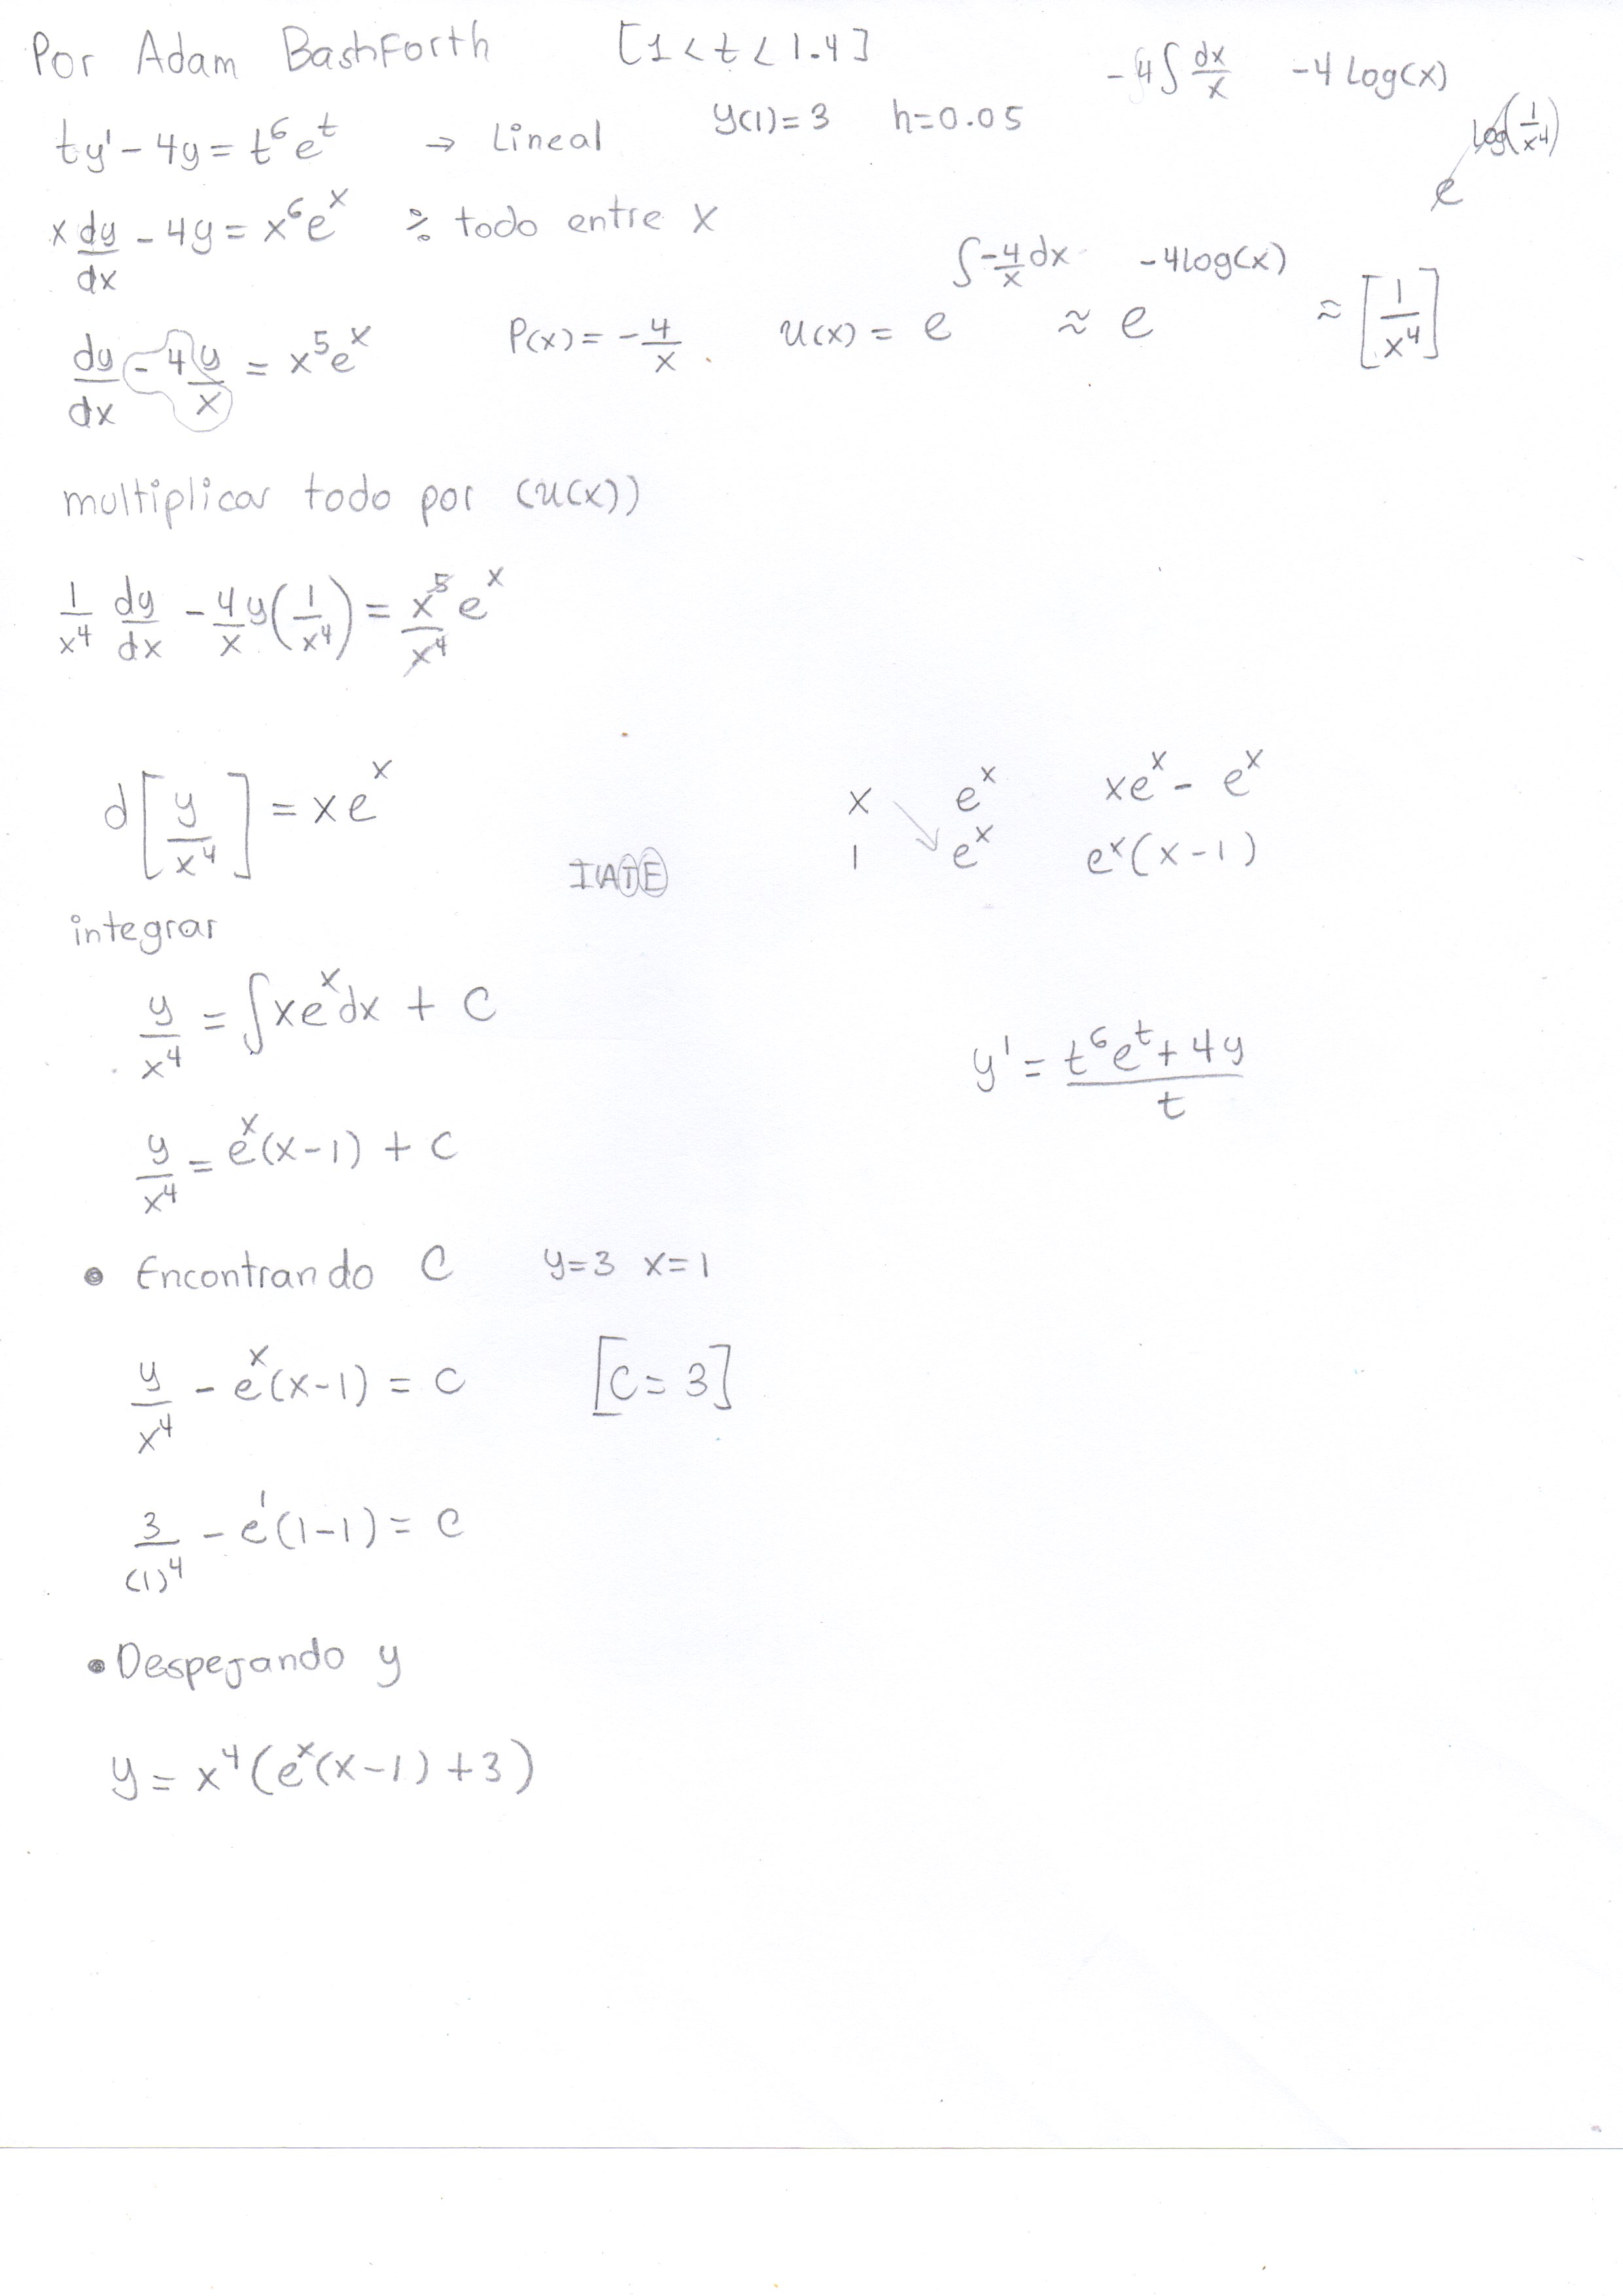 Por Adam Bashforth [1 < t < 1.4] -4∫dx/x -4 Log(x)
ty' - 4y = t⁶eᵗ → Lineal y(1)=3 h=0.05 e^log(1/x⁴)
x dy/dx - 4y = x⁶eˣ ÷ todo entre x
dy/dx - 4y/x = x⁵eˣ P(x) = -4/x u(x) = e^∫-4/x dx ≈ e^-4log(x) ≈ [1/x⁴]
multiplicar todo por (u(x))
1/x⁴ dy/dx - 4/x y(1/x⁴) = x⁵/x⁴ eˣ
d[y/x⁴] = xeˣ
x eˣ xeˣ - eˣ
1 eˣ eˣ(x-1)
ILATE
integrar
y/x⁴ = ∫xeˣdx + C
y' = t⁶eᵗ + 4y / t
y/x⁴ = eˣ(x-1) + C
• Encontrando C y=3 x=1
y/x⁴ - eˣ(x-1) = C [C = 3]
3/(1)⁴ - e¹(1-1) = C
• Despejando y
y = x⁴(eˣ(x-1) + 3)